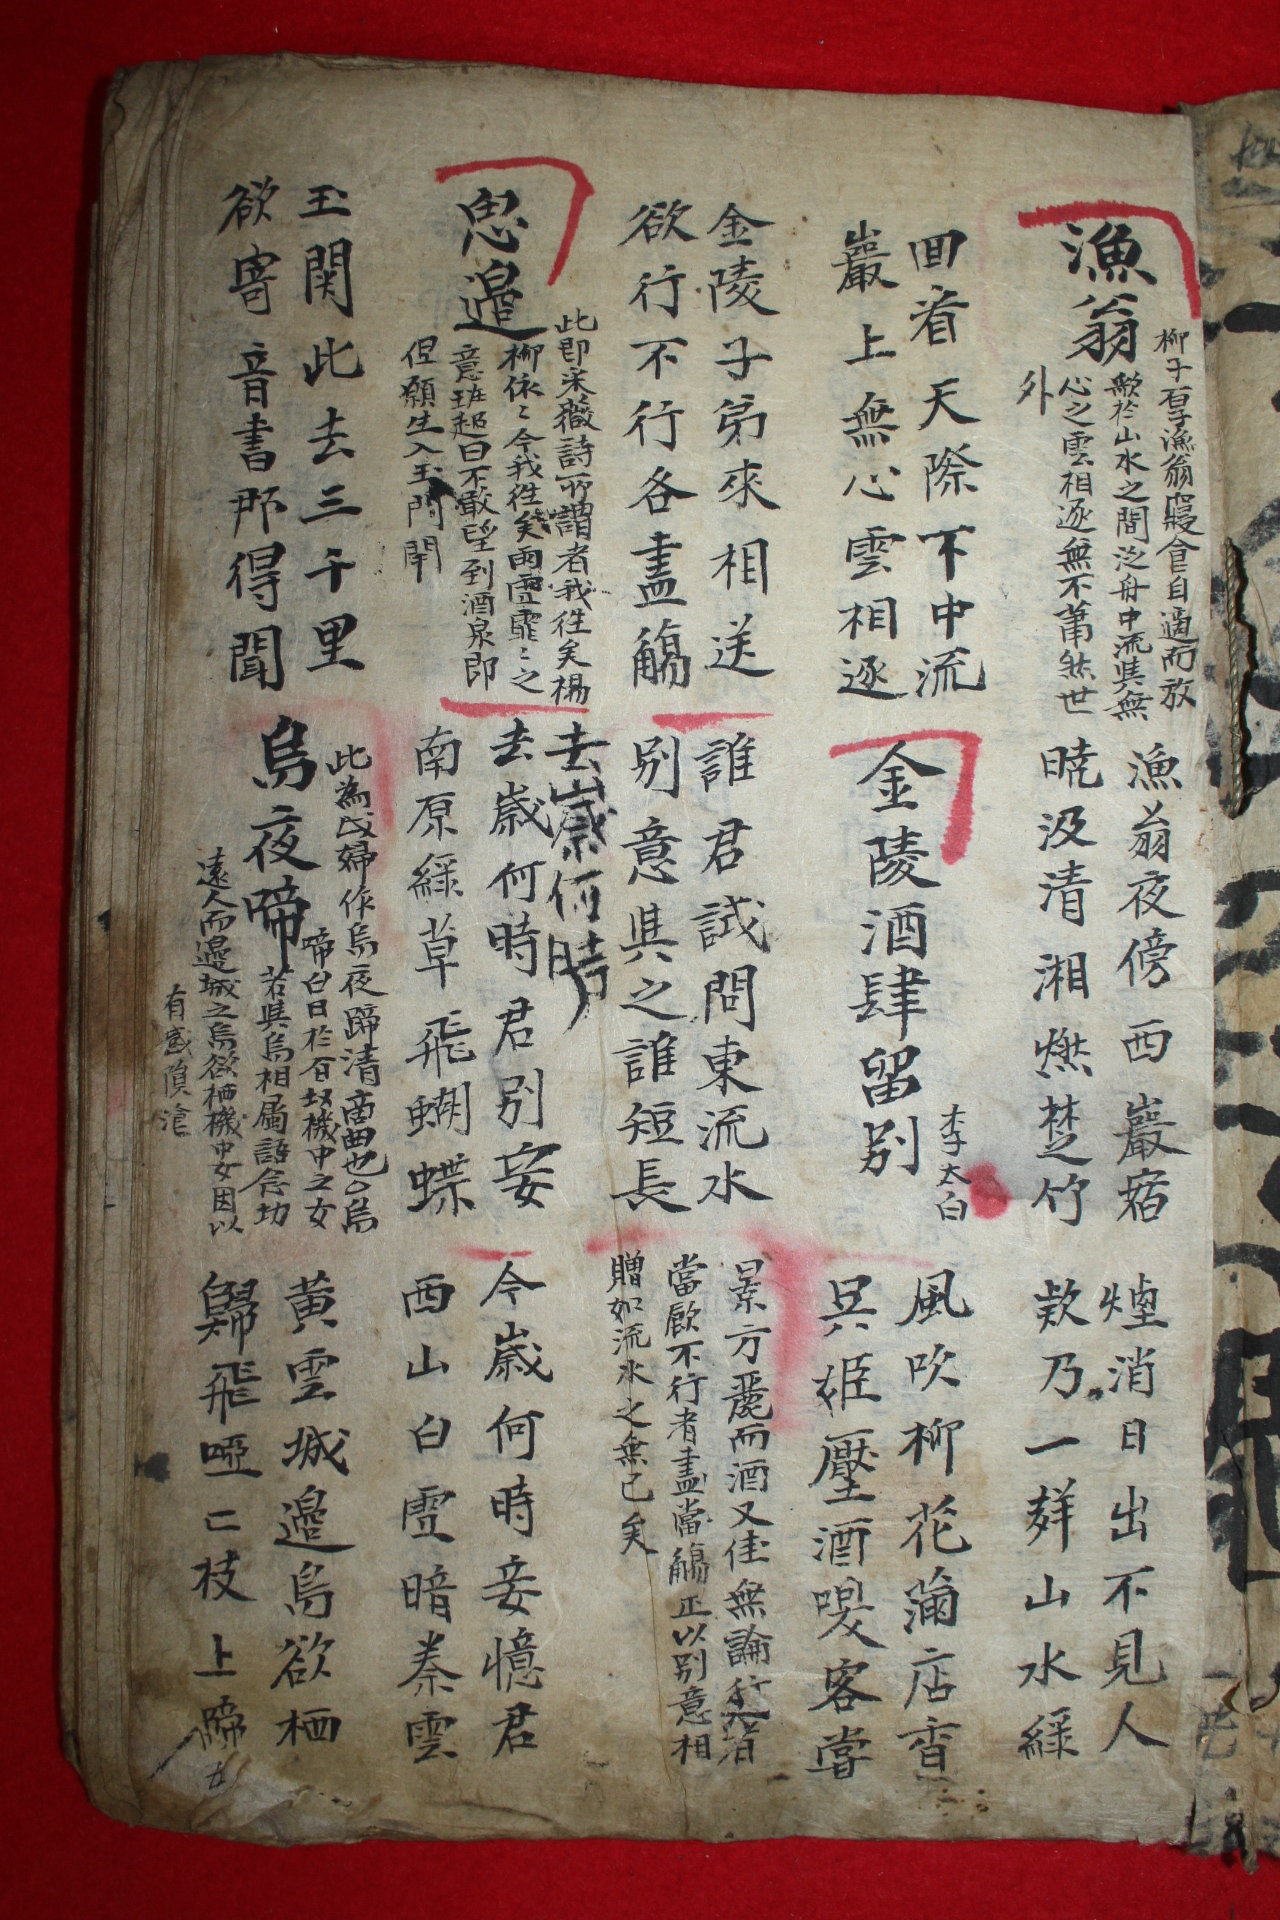 漁翁
柳子百子漁翁寢食自適而放
歌於山水之間泛舟中流與無
心之雲相逐無不蕭然世
外
漁翁夜傍西巖宿
曉汲清湘燃楚竹
煙消日出不見人
欸乃一聲山水綠
回看天際下中流
巖上無心雲相逐
金陵酒肆留別
李太白
風吹柳花滿店香
吳姬壓酒喚客嘗
金陵子弟來相送
欲行不行各盡觴
誰君試問東流水
別意與之誰短長
景方麗而酒又佳無論行者
當厭不行者盡當觴正以別意相
贈如流水之無已矣
思邊
此即采薇詩所謂昔我往矣楊
柳依〻今我往矣雨雪霏〻之
意班超曰不敢望到酒泉即
但願生入玉門関
去歲何時
去歲何時君別妾
南原綠草飛蝴蝶
今歲何時妾憶君
西山白雪暗秦雲
玉関此去三千里
欲寄音書那得聞
烏夜啼
此為戍婦作烏夜啼清商曲也烏
啼白日於有機中之女
若與烏相屬語念切
遠人而邊城之烏欲栖機中女因以
有感
黃雲城邊烏欲栖
歸飛啞〻枝上啼